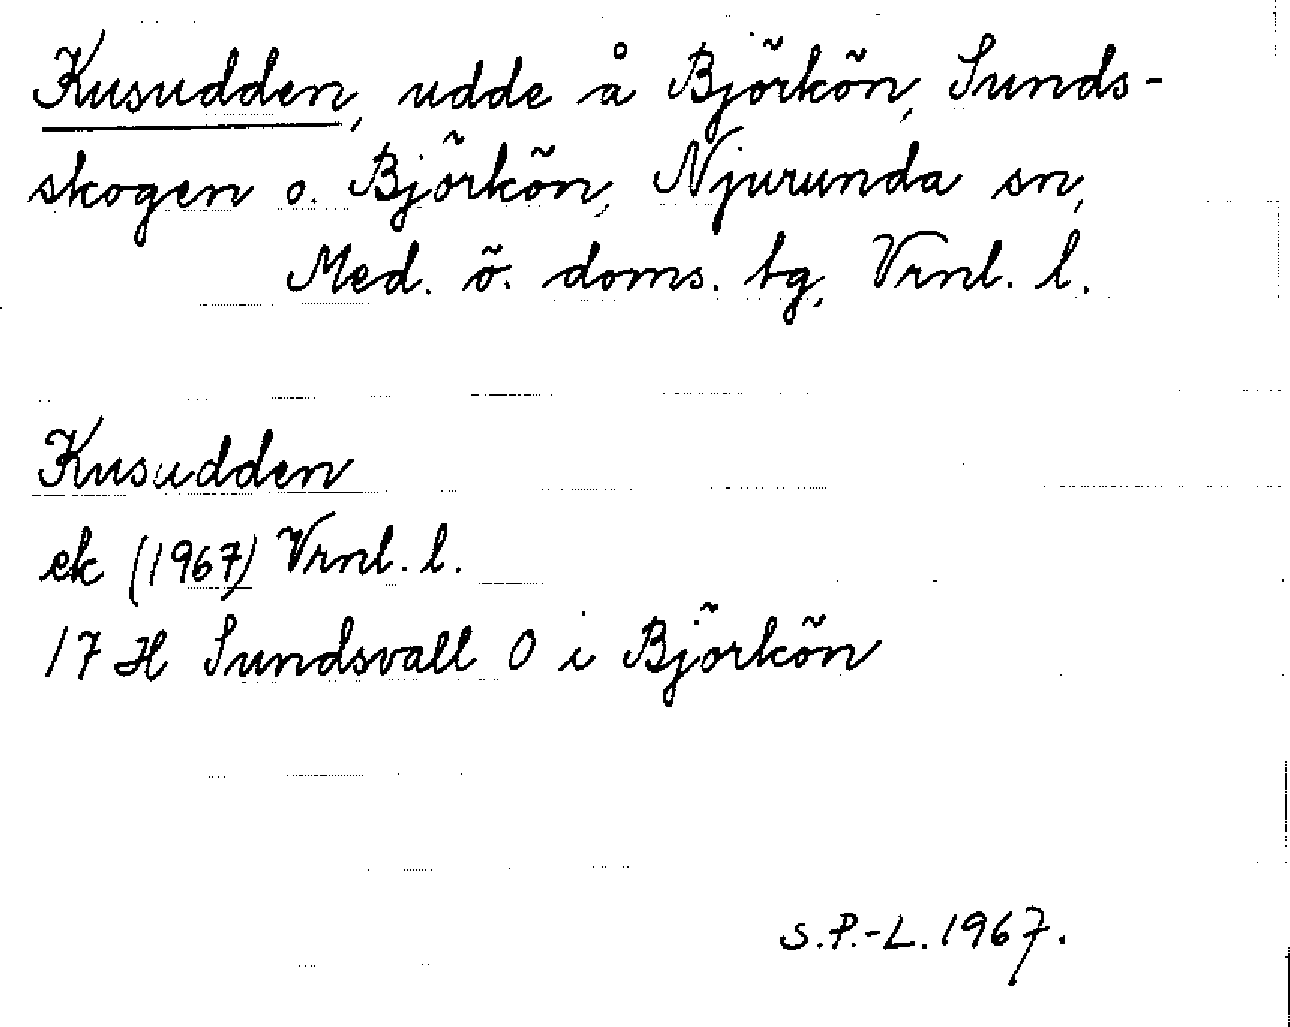 Kusudden, udde å Björkön, Sunds-
skogen o. Björkön, Njurunda sn,
Med. ö. doms. tg, Vrnl. l.
Kusudden
ek (1967) Vrnl. l.
17 H Sundsvall O i Björkön
S.P.-L. 1967.